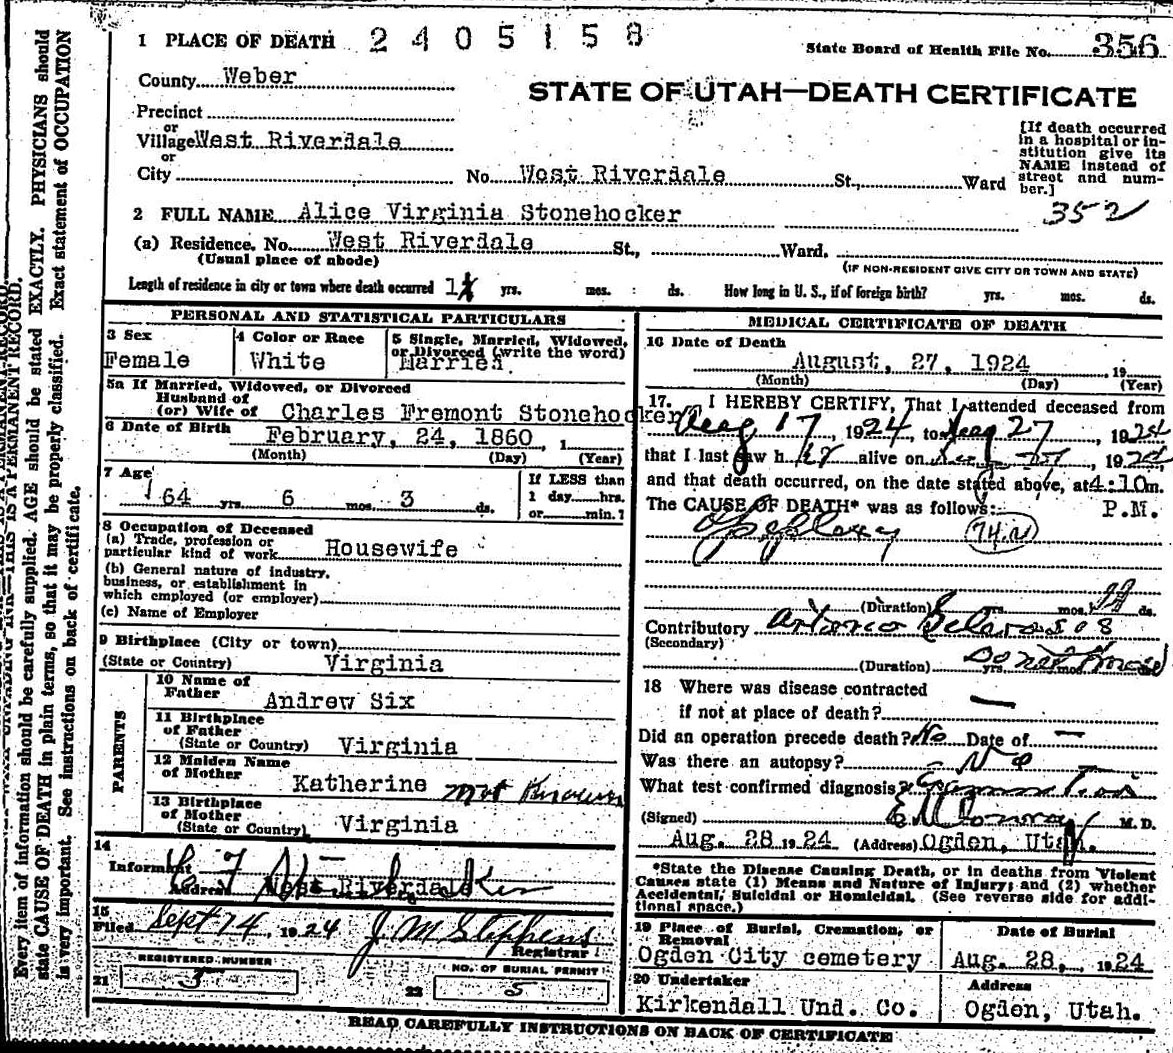 1 PLACE OF DEATH 2405158
State Board of Health File No. 356
County Weber
STATE OF UTAH—DEATH CERTIFICATE
Precinct
or
Village West Riverdale
or
City No. West Riverdale St., Ward
[If death occurred
in a hospital or in-
stitution give its
NAME instead of
street and num-
ber.]
352
2 FULL NAME Alice Virginia Stonehocker
(a) Residence. No. West Riverdale St., Ward.
(Usual place of abode)
(IF NON-RESIDENT GIVE CITY OR TOWN AND STATE)
Length of residence in city or town where death occurred yrs. mos. ds. How long in U. S., if of foreign birth? yrs. mos. ds.
PERSONAL AND STATISTICAL PARTICULARS
3 Sex
Female
4 Color or Race
White
5 Single, Married, Widowed,
or Divorced (write the word)
Married.
5a If Married, Widowed, or Divorced
Husband of
(or) Wife of Charles Fremont Stonehocker
6 Date of Birth February, 24, 1860 1
(Month) (Day) (Year)
7 Age
64 yrs. 6 mos. 3 ds.
If LESS than
1 day hrs.
or min.?
8 Occupation of Deceased
(a) Trade, profession or
particular kind of work Housewife
(b) General nature of industry,
business, or establishment in
which employed (or employer)
(c) Name of Employer
9 Birthplace (City or town)
(State or Country) Virginia
PARENTS
10 Name of
Father Andrew Six
11 Birthplace
of Father
(State or Country) Virginia
12 Maiden Name
of Mother Katherine not Known
13 Birthplace
of Mother
(State or Country) Virginia
14
Informant C F
Address West Riverdale
15
Filed Sept 1924 J M Stephens
Registrar
REGISTERED NUMBER
21 3
NO. OF BURIAL PERMIT
22 5
MEDICAL CERTIFICATE OF DEATH
16 Date of Death
August, 27, 1924 19
(Month) (Day) (Year)
17. I HEREBY CERTIFY, That I attended deceased from
Aug 17 1924, to Aug 27, 1924
that I last saw her alive on Aug 27, 1924,
and that death occurred, on the date stated above, at 4:10 m.
The CAUSE OF DEATH* was as follows: P.M.
Apoplexy
(Duration) yrs. mos. ds.
Contributory Arterio Sclerosis
(Secondary)
(Duration) Do not Know yrs. mos.
18 Where was disease contracted
if not at place of death? —
Did an operation precede death? No Date of —
Was there an autopsy? No
What test confirmed diagnosis?
(Signed) E M Conroy M. D.
Aug. 28 1924 (Address) Ogden, Utah.
*State the Disease Causing Death, or in deaths from Violent
Causes state (1) Means and Nature of Injury; and (2) whether
Accidental, Suicidal or Homicidal. (See reverse side for addi-
tional space.)
19 Place of Burial, Cremation, or
Removal
Ogden City cemetery
Date of Burial
Aug. 28, 1924
20 Undertaker
Kirkendall Und. Co.
Address
Ogden, Utah.
READ CAREFULLY INSTRUCTIONS ON BACK OF CERTIFICATE
THIS IS A PERMANENT RECORD.
Every item of information should be carefully supplied. AGE should be stated EXACTLY. PHYSICIANS should
state CAUSE OF DEATH in plain terms, so that it may be properly classified. Exact statement of OCCUPATION
is very important. See instructions on back of certificate.